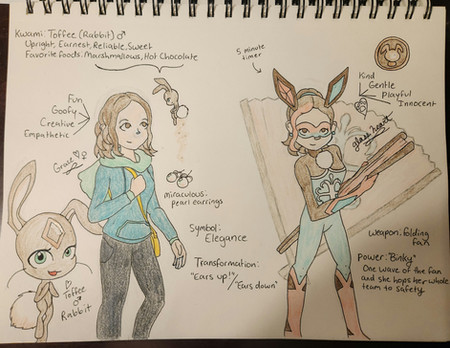 Kwami: Toffee (Rabbit) ♂
Upright, Earnest, Reliable, Sweet
Favorite foods: Marshmallows, Hot Chocolate
5 minute
timer
Kind
Gentle
Playful
Innocent
Fun
Goofy
Creative
Empathetic
Grace ♀
glass heart
miraculous:
pearl earrings
Symbol:
Elegance
Transformation:
"Ears up!"
"Ears down"
Weapon: folding
fan
Power: "Binky"
One wave of the fan
and she hops her whole
team to safety
Toffee
♂
Rabbit